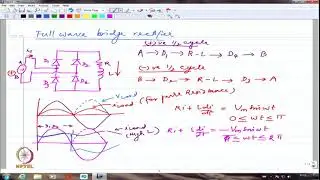 Full wave bridge rectifier
(+)ve ½ cycle
A → D₁ → R-L → D₄ → B
(-)ve ½ cycle
B → D₂ → R-L → D₃ → A
R
L
D₁
D₂
V load
i load (for pure resistance)
Ri + L di/dt = Vm sin ωt
0 ≤ ωt ≤ π
i load
(High L)
Ri + L di/dt = -Vm sin ωt
π ≤ ωt ≤ 2π
NPTEL